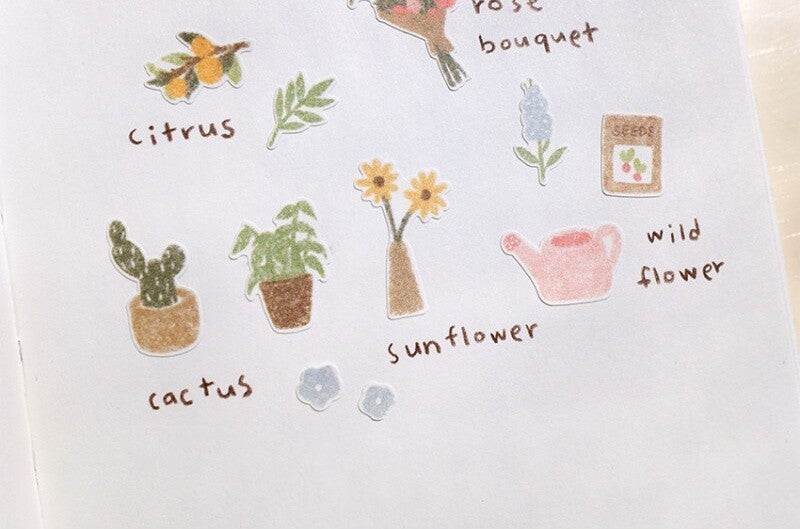 rose
bouquet
citrus
SEEDS
wild
flower
sunflower
cactus